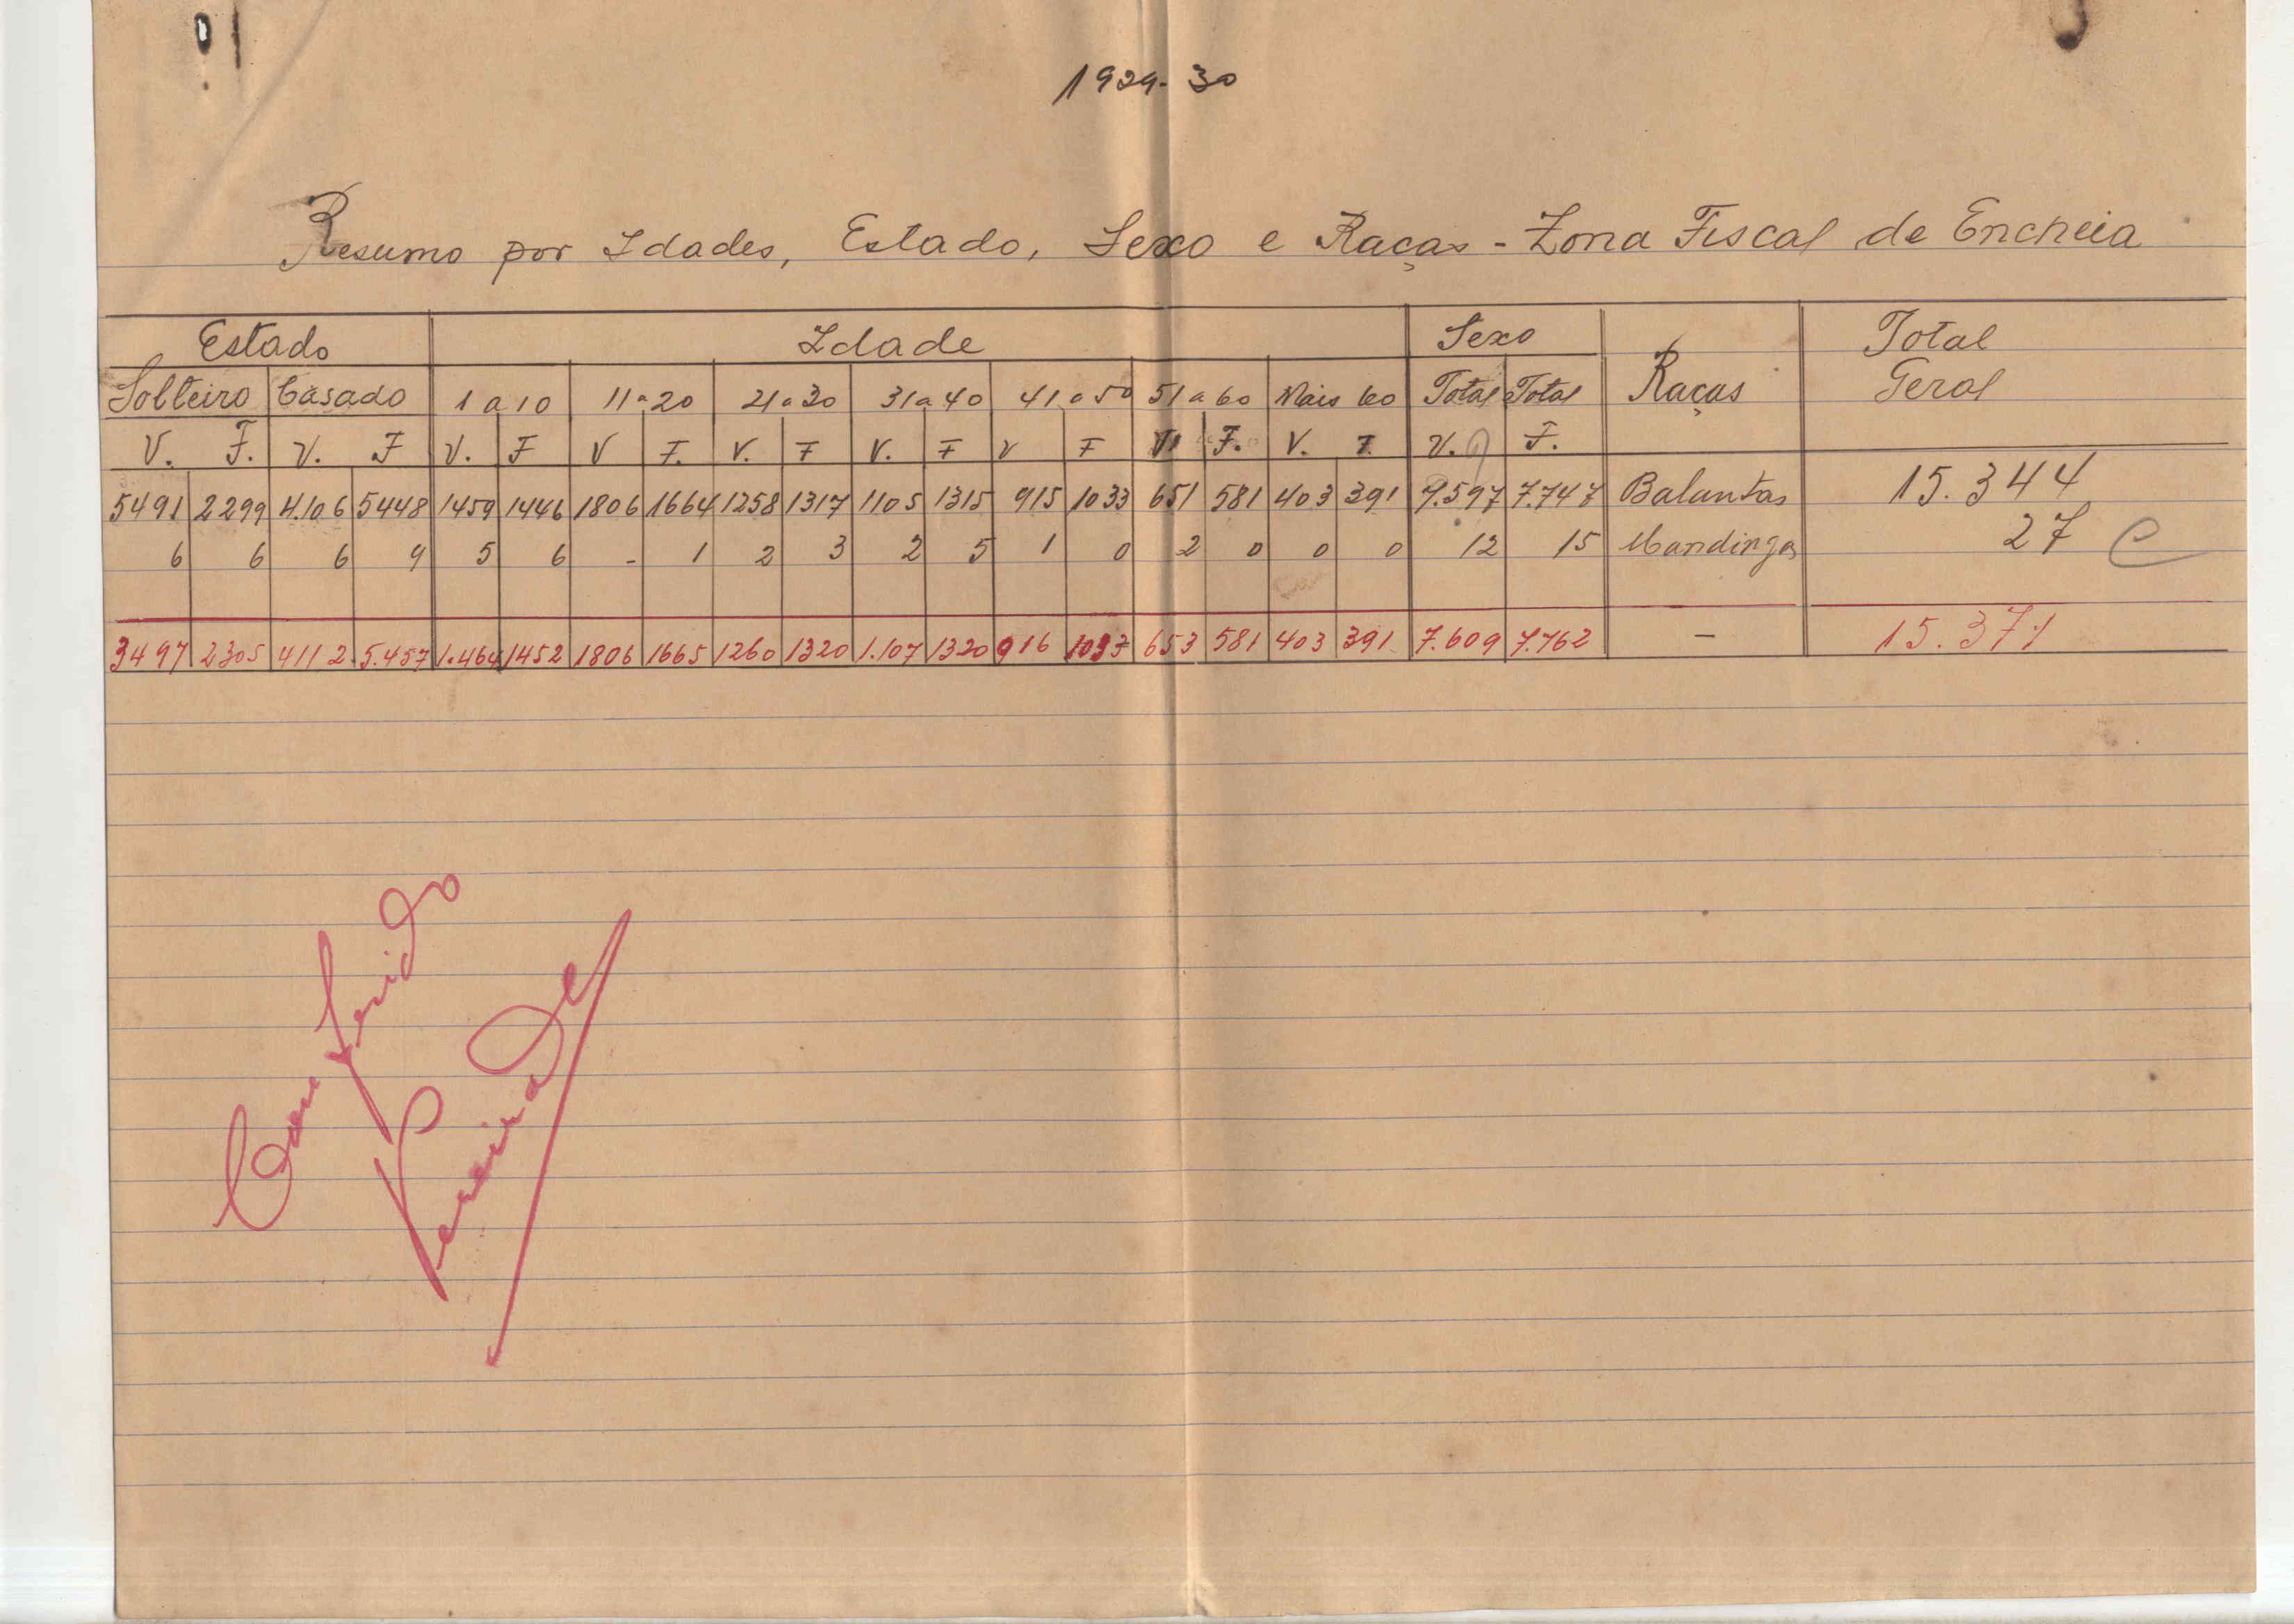 1929-30
Resumo por Idades, Estado, Sexo e Raças - Zona Fiscal de Encheia
Estado Idade Sexo Raças Total Geral
Solteiro Casado 1 a 10 11 a 20 21 a 30 31 a 40 41 a 50 51 a 60 Mais 60 Total Total
V. F. V. F V. F V F. V. F V. F V F V F. V. F. V. F.
5491 2299 4.106 5448 1459 1446 1806 1664 1258 1317 1105 1315 915 1033 651 581 403 391 7.597 7.747 Balantas 15.344
6 6 6 9 5 6 - 1 2 3 2 5 1 0 2 0 0 0 12 15 Mandingas 27 C
3497 2305 4112 5.457 1.464 1452 1806 1665 1260 1320 1.107 1320 916 1033 653 581 403 391 7.609 7.762 - 15.371
Conferido